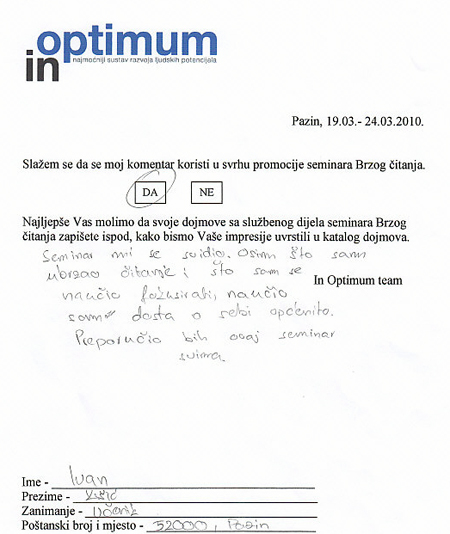 in optimum
najmoćniji sustav razvoja ljudskih potencijala
Pazin, 19.03.- 24.03.2010.
Slažem se da se moj komentar koristi u svrhu promocije seminara Brzog čitanja.
DA NE
Najljepše Vas molimo da svoje dojmove sa službenog dijela seminara Brzog
čitanja zapišete ispod, kako bismo Vaše impresije uvrstili u katalog dojmova.
Seminar mi se svidio. Osim što sam
ubrzao čitanje i što sam se
In Optimum team
naučio fokusirati, naučio
sam dosta o sebi općenito.
Preporučio bih ovaj seminar
svima.
Ime - Ivan
Prezime -
Zanimanje - Učenik
Poštanski broj i mjesto - 52000, Pazin